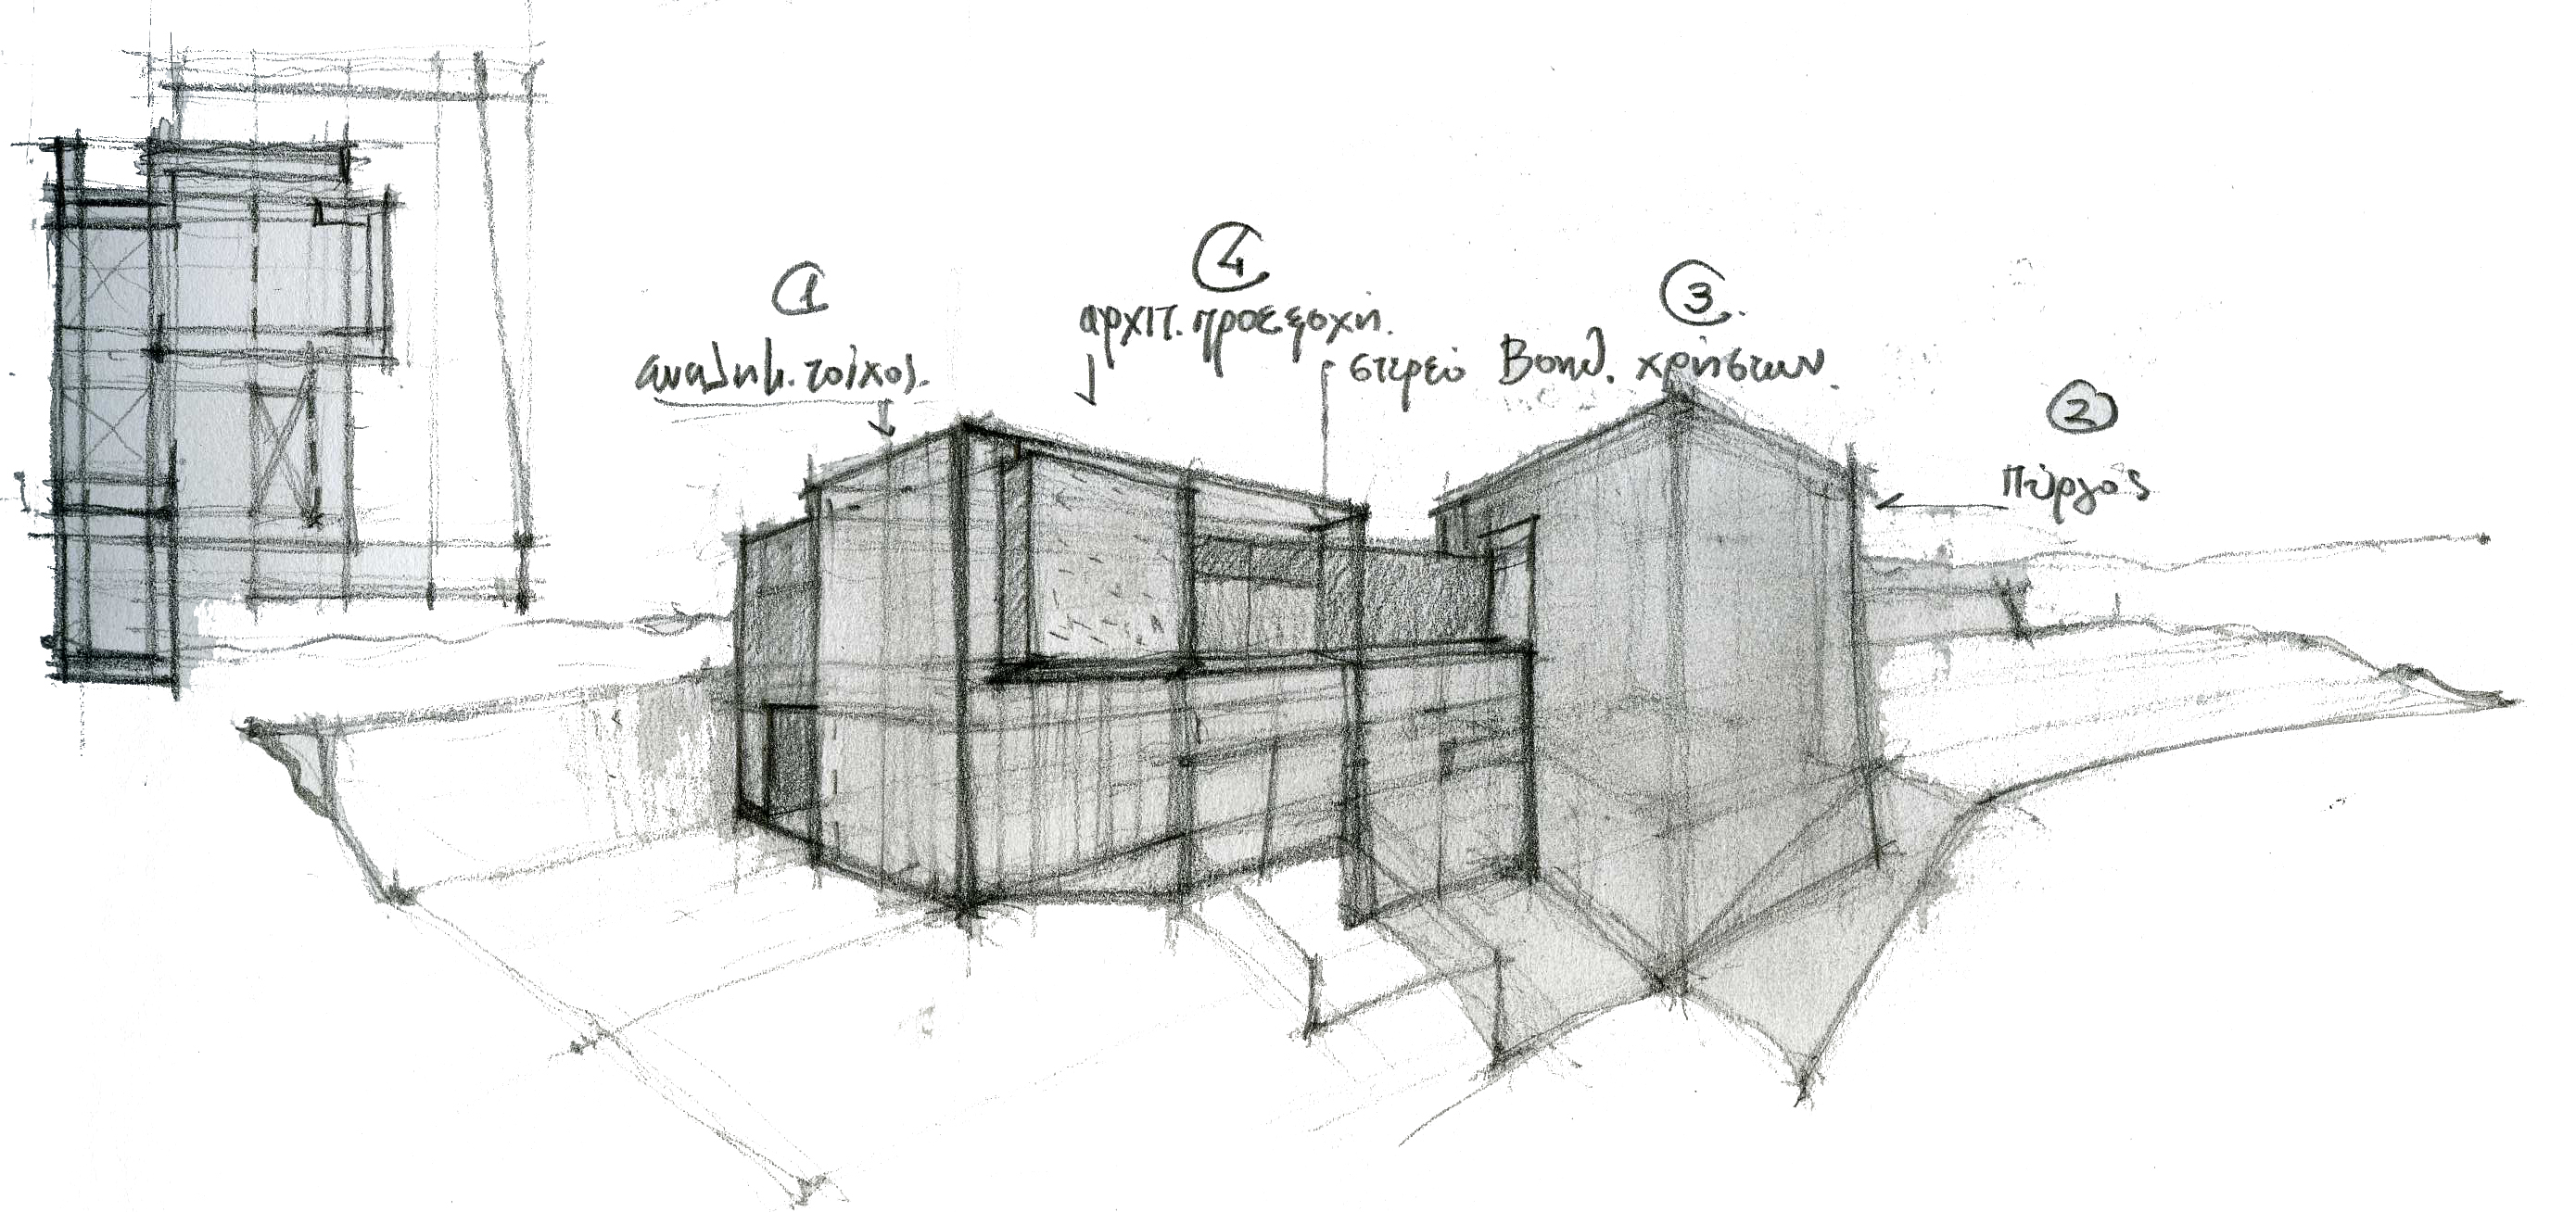 ①
αναλημ. τοίχος.
④
αρχιτ. προεξοχή.
③.
στερεό βοηθ. χρήσεων.
②
πύργος